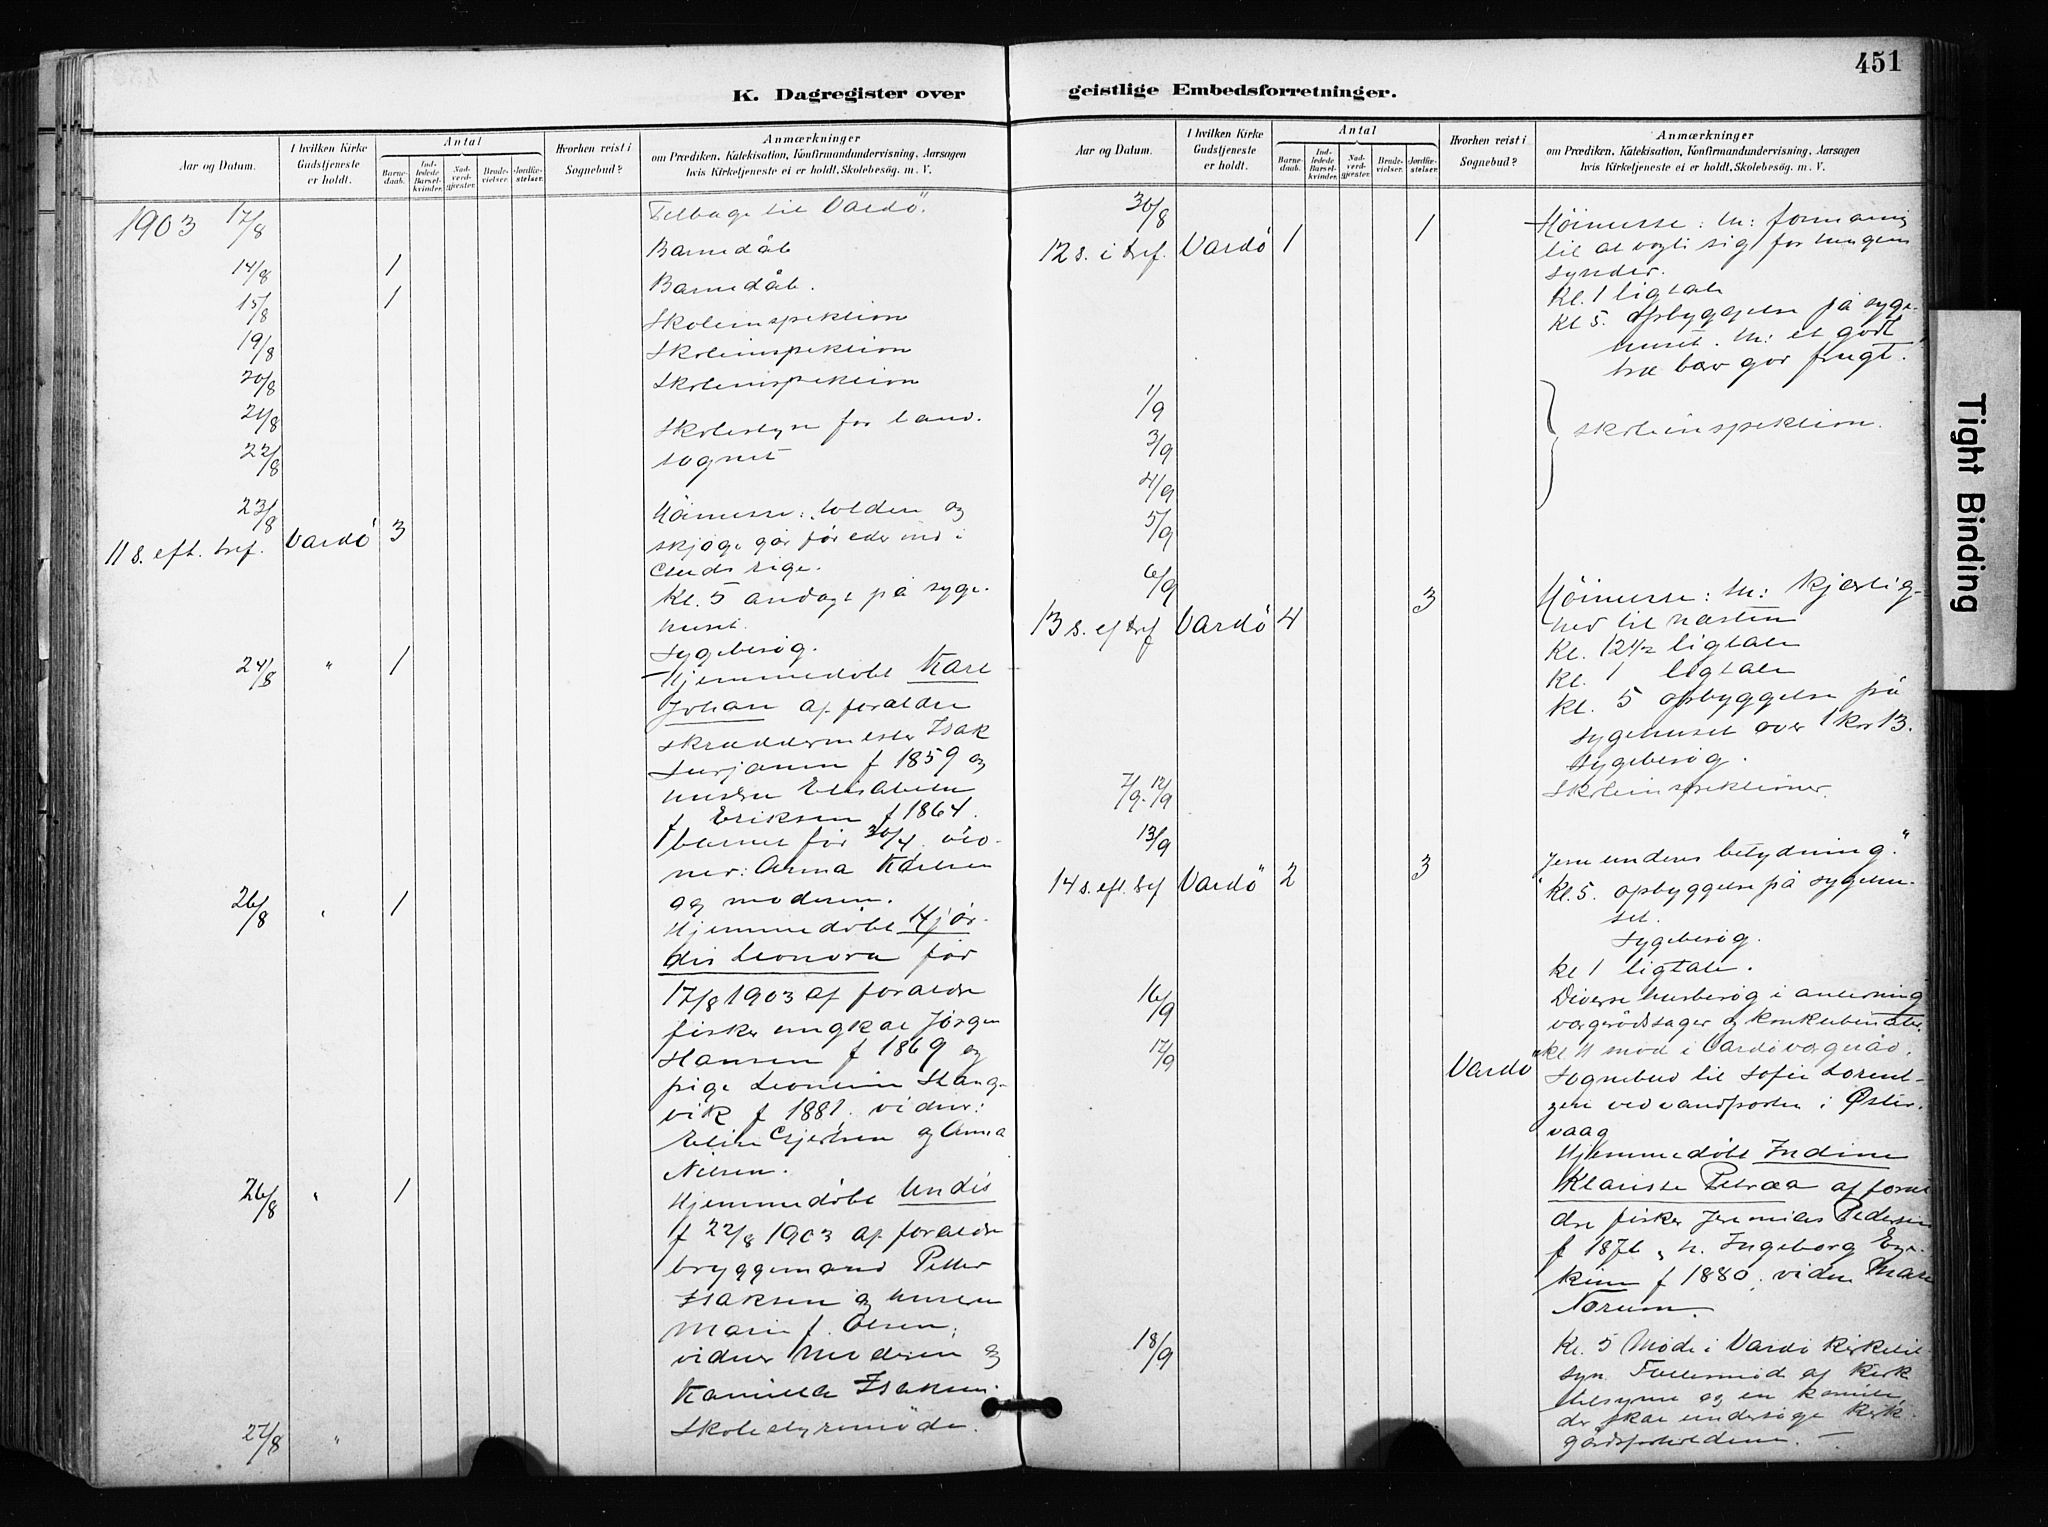 451
K. Dagregister over
geistlige Embedsforretninger.
Aar og Datum.
I hvilken Kirke
Gudstjeneste
er holdt.
Antal
Barne-
daab.
Ind-
ledede
Barsel-
kvinder.
Nad-
verd-
gjester.
Brude-
vielser.
Jordfæ-
stelser.
Hvorhen reist i
Sognebud?
Anmærkninger
om Prædiken, Katekisation, Konfirmandundervisning, Aarsagen
hvis Kirketjeneste ei er holdt, Skolebesøg. m. V.
1903 17/8 Tilbage til Vardö.
14/8 1 Barnedåb
15/8 1 Barnedåb.
19/8 Skoleinspektion
20/8 Skoleinspektion
21/8 Skoleinspektion
22/8 Skolestyre for land-
sognet
23/8
11 s. eft. tref. Vardö 3
Höimesse: tolden og
skjøge går før eder ind i
Guds rige.
Kl. 5 andagt på syge-
huset.
Sygebesøg.
24/8 " 1 Hjemmedöbt Karl
Johan af foraldre
skræddermester Isak
f 1859 og
hustru Elisabeth
f Eriksen f 1864.
barnet før 30/4. vid-
ner: Anna
og moderen.
26/8 " 1 Hjemmedöbt Hjør-
dis Leonora før
17/8 1903 af foraldre
fisker ungkar Jørgen
Hansen f 1869 og
pige Stang-
vik f 1881. vidner:
Gjertsen og Anna
Nilsen.
26/8 " 1 Hjemmedöbt Undis
f 22/8 1903 af foraldre
bryggemand Petter
Isaksen og hustru
Marie f. Olsen;
vidner Moderen og
Kamilla Isaksen.
27/8 " Skolestyremöde.
Aar og Datum.
I hvilken Kirke
Gudstjeneste
er holdt.
Antal
Barne-
daab.
Ind-
ledede
Barsel-
kvinder.
Nad-
verd-
gjester.
Brude-
vielser.
Jordfæ-
stelser.
Hvorhen reist i
Sognebud?
Anmærkninger
om Prædiken, Katekisation, Konfirmandundervisning, Aarsagen
hvis Kirketjeneste ei er holdt, Skolebesøg. m. V.
30/8
12 s. i tref. Vardö 1 1 Höimesse: th: formaning
til at vogte sig for tungens
synder.
Kl. 1 ligtale
Kl 5. opbyggelse på syge-
huset. th: et godt
træ bær god frugt.
1/9
3/9 skoleinspektion.
4/9
5/9
6/9
13 s. ef tref Vardö 4 3 Höimesse: th: kjærlig-
hed til næsten
Kl. 12 1/2 ligtale
Kl. 1 ligtale
Kl. 5 opbyggelse på
sygehuset over 1 kor 13.
Sygebesøg.
7/9-12/9 Skoleinspektioner.
13/9
14 s. eft. tref Vardö 2 3
Jesu unders betydning."
Kl. 5. opbyggelse på sygehu-
set.
Sygebesøg.
Kl 1 ligtale.
16/9 Diverse husbesøg i anledning
værgerådssager og konkubinater.
17/9 Kl 11 möd i Vardö værgeråd.
Vardö Sognebud til Sofie Lorent-
zen ved vandporten i Øster-
vaag
Hjemmedöbt Indine
Klariste Petræa af foræl
dre fisker Jeremias Pedersen
f 1876, h. Ingeborg
f 1880. vidne Mare
Norum.
18/9 Kl. 5 Möde i Vardö kirketil
syn. Fællesmöd af kirk
tilsyne og en komite
der skal undersøge kirk-
gårdsforholdene. —
Tight Binding